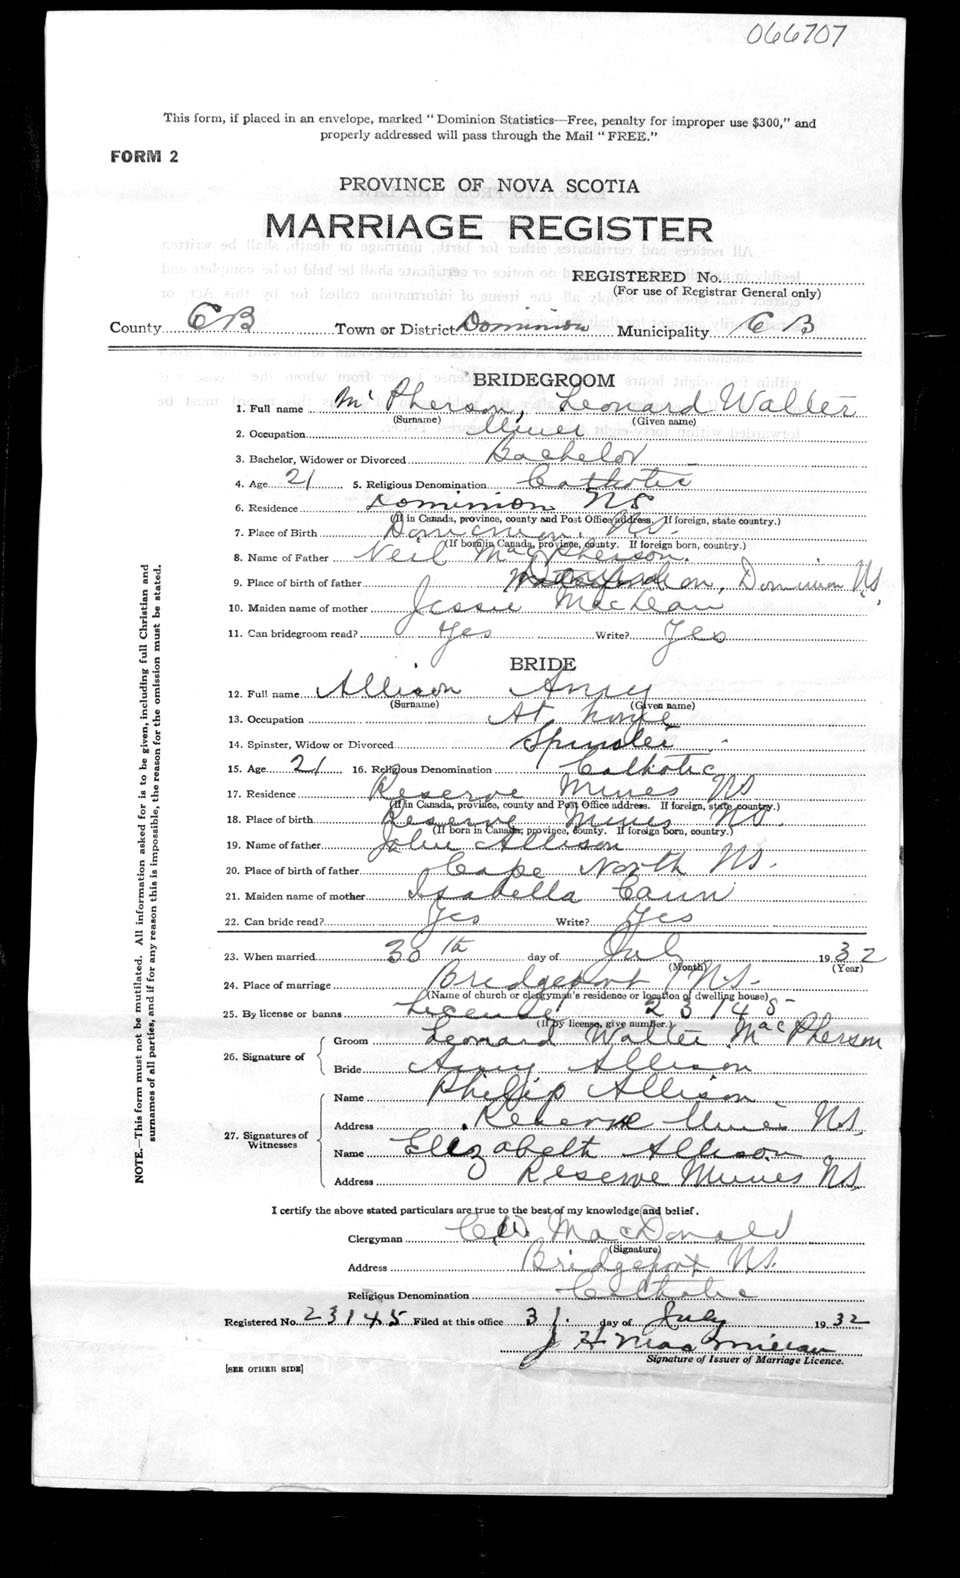 066707
This form, if placed in an envelope, marked "Dominion Statistics—Free, penalty for improper use $300," and
properly addressed will pass through the Mail "FREE."
FORM 2
PROVINCE OF NOVA SCOTIA
MARRIAGE REGISTER
REGISTERED No.
(For use of Registrar General only)
County CB Town or District Dominion Municipality CB
BRIDEGROOM
1. Full name McPherson, Leonard Walter
(Surname) (Given name)
2. Occupation Miner
3. Bachelor, Widower or Divorced Bachelor
4. Age 21 5. Religious Denomination Catholic
6. Residence Dominion NS
(If in Canada, province, county and Post Office address. If foreign, state country.)
7. Place of Birth Dominion, NS
(If born in Canada, province, county. If foreign born, country.)
8. Name of Father Neil MacPherson.
9. Place of birth of father Dominion NS
10. Maiden name of mother Jessie MacLean
11. Can bridegroom read? Yes Write? Yes
BRIDE
12. Full name Allison Amy
(Surname) (Given name)
13. Occupation At home
14. Spinster, Widow or Divorced Spinster
15. Age 21 16. Religious Denomination Catholic
17. Residence Reserve Mines NS
(If in Canada, province, county and Post Office address. If foreign, state country.)
18. Place of birth Reserve Mines NS.
(If born in Canada, province, county. If foreign born, country.)
19. Name of father John Allison
20. Place of birth of father Cape North NS.
21. Maiden name of mother Isabella Cann
22. Can bride read? Yes Write? Yes
23. When married 30th day of July 1932
(Month) (Year)
24. Place of marriage Bridgeport NS.
(Name of church or clergyman's residence or location of dwelling house)
25. By license or banns License 23145
(If by license, give number.)
26. Signature of
Groom Leonard Walter MacPherson
Bride Amy Allison
27. Signatures of Witnesses
Name Phillip Allison
Address Reserve Mines NS.
Name Elizabeth Allison
Address Reserve Mines NS.
I certify the above stated particulars are true to the best of my knowledge and belief.
Clergyman MacDonald
(Signature)
Address Bridgeport NS.
Religious Denomination Catholic
Registered No. 23145 Filed at this office 31. day of July 1932
J H MacMillan
Signature of Issuer of Marriage Licence.
[SEE OTHER SIDE]
NOTE.—This form must not be mutilated. All information asked for is to be given, including full Christian and
surnames of all parties, and if for any reason this is impossible, the reason for the omission must be stated.